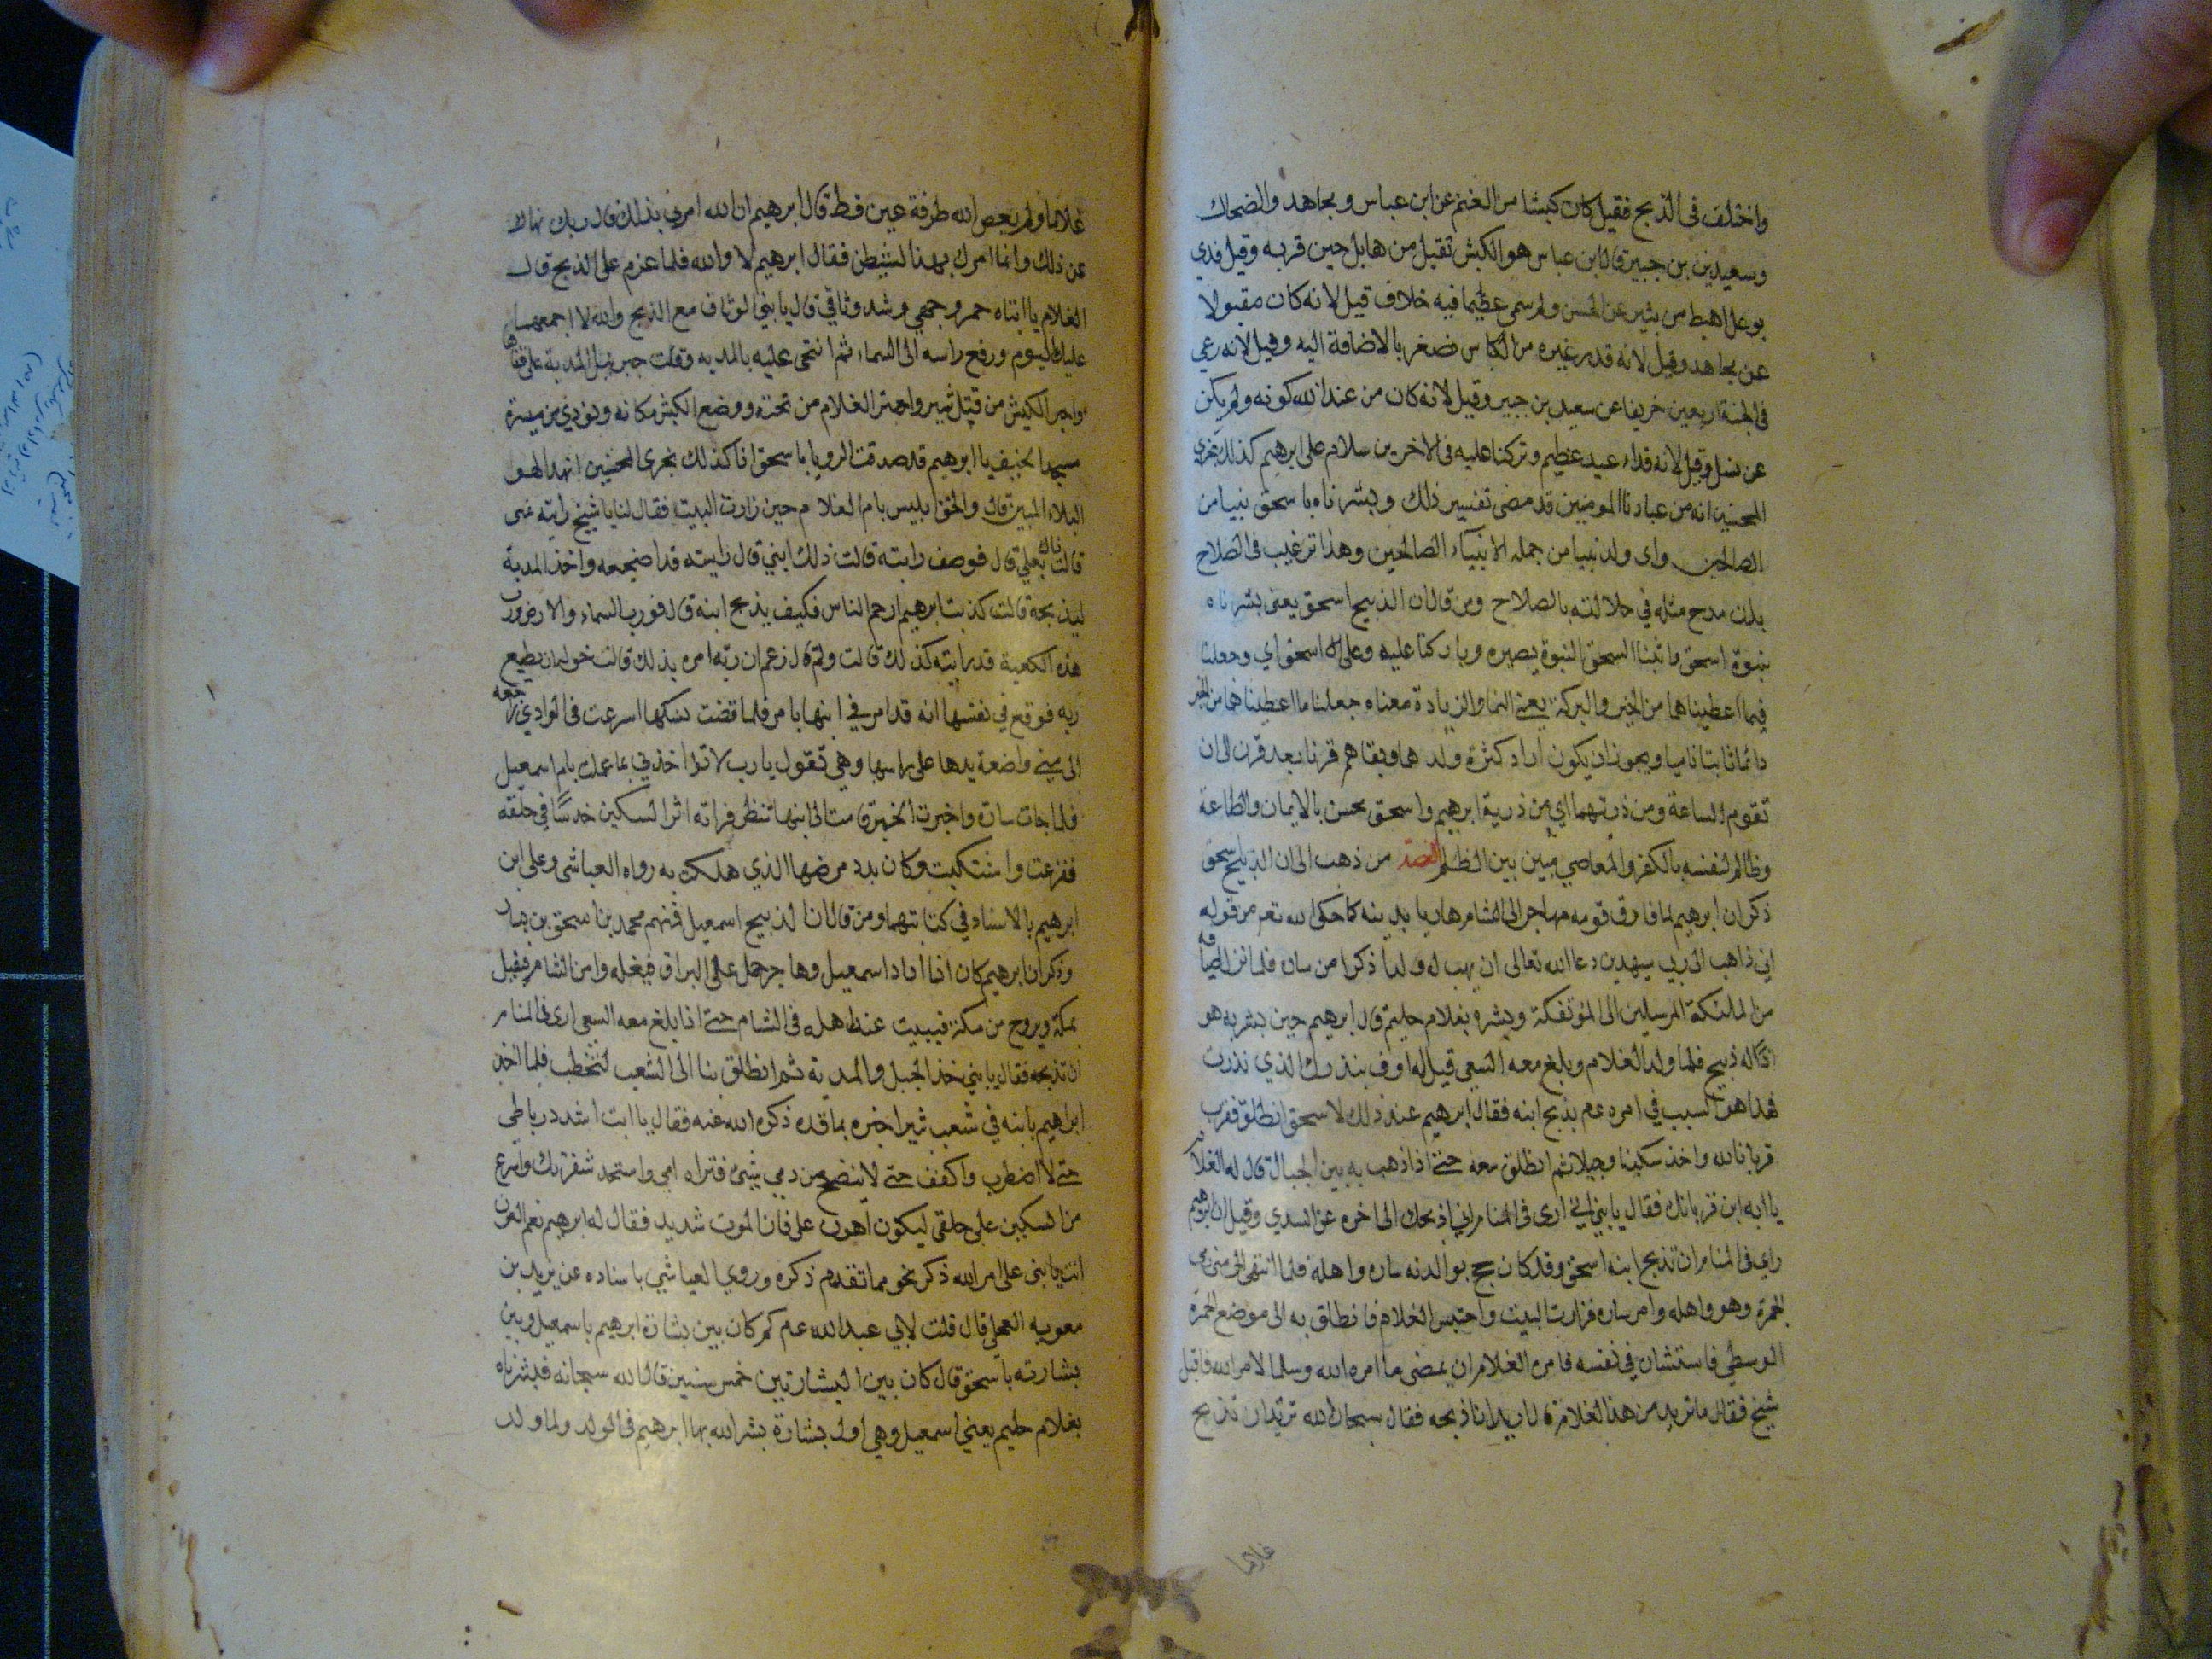 واختلف فى الذبح فقيل كان كبشا من الغنم عن ابن عباس ومجاهد والضحاك
وسعيد بن جبير قال ابن عباس هو الكبش تقبل من هابيل حين قربه وقيل فدي
بوعل اهبط من ثبير عن الحسن ولم سمى عظيما فيه خلاف قيل لانه كان مقبولا
عن مجاهد وقيل لانه قدر غيره من الكباش فصغر بالاضافة اليه وقيل لانه رعي
فى الجنة اربعين خريفا عن سعيد بن جبير وقيل لانه كان من عند الله كونه ولم يكن
عن نسل وقيل لانه فداء عبد عظيم وتركنا عليه فى الاخرين سلام على ابرهيم كذلك نجزى
المحسنين انه من عبادنا المومنين قد مضى تفسير ذلك وبشرناه باسحق نبيا من
الصالحين واى ولد نبيا من جمله الانبيآء الصالحين وهذا ترغيب فى الصلاح
بان مدح مثله في جلالته بالصلاح ومن قال ان الذبيح اسحق يعنى بشرناه
بنبوة اسحق واتينا اسحق النبوة بصبره وباركنا عليه وعلى اسحق اي وجعلنا
فيما اعطيناهما من الخير والبركة يعنى النما والزيادة معناه جعلنا ما اعطيناهما من الخير
دائما ثابتا ناميا ويجوز ان يكون اراد كثرة ولدهما وبقاهم قرنا بعد قرن الى ان
تقوم الساعة ومن ذريتهما اي من ذرية ابرهيم واسحق محسن بالايمان والطاعة
وظالم لنفسه بالكفر والمعاصي مبين بين الظلم القصة من ذهب الى ان الذبيح اسحق
ذكر ان ابرهيم لما فارق قومه مهاجرا الى الشام هاربا بدينه كما حكى الله تعم من قوله
اني ذاهب الى ربي سيهدين دعا الله تعالى ان يهب له ولدا ذكرا من ساره فلما نزل اضيافه
من الملئكة المرسلين الى المؤتفكة وبشره بغلام حليم قال ابرهيم حين بشر به هو
اذا لله ذبيح فلما ولد الغلام وبلغ معه السعى قيل له اوف بنذرك الذي نذرت
فهذا هو السبب في امره عم بذبح ابنه فقال ابرهيم عند ذلك لاسحق انطلق فقرب
قربانا لله واخذ سكينا وحبلا ثم انطلق معه حتى اذا ذهب به بين الجبال قال له الغلام
يا ابه اين قربانك فقال يا بني انى ارى فى المنام اني اذبحك الى اخره عن السدي وقيل ان ابرهيم
راي فى المنام ان تذبح ابنه اسحق وقد كان حج بوالدته ساره واهله فلما انتهى الى منى رمى
الجمرة وهو واهله وامر ساره فزارت البيت واحتبس الغلام فانطلق به الى موضع الجمرة
الوسطي فاستشاره في نفسه فامره الغلام ان يمضى ما امره الله وسلما لامر الله فاقبل
شيخ فقال ما تريد من هذا الغلام قال اريد ان اذبحه فقال سبحان الله تريد ان تذبح
غلاما
غلاما ولم يعص الله طرفة عين قط قال ابرهيم ان الله امرني بذلك قال ربك نهاك
عن ذلك وانما امرك بهذا الشيطن فقال ابرهيم لا والله فلما عزم على الذبح قال
الغلام يا ابتاه خمر وجهي وشد وثاقي قال يا بني الوثاق مع الذبح والله لا اجمعهما
عليك اليوم ورفع راسه الى السماء ثم انتحى عليه بالمدية وقلب جبرئيل المدية على قفاها
واجتر الكبش من قبل ثبير واجتر الغلام من تحته ووضع الكبش مكانه ونودي من ميسرة
مسجد الخيف يا ابرهيم قد صدقت الرويا باسحق انا كذلك نجزى المحسنين ان هذا لهو
البلاء المبين قال ولحق ابليس بام الغلام حين زارت البيت فقال لها يا شيخ رايته بمنى
قالت ذاك بعلي قال فوصف رايته قالت ذلك ابني قال رايته قد اضجعه واخذ المدية
ليذبحه قالت كذبت ابرهيم ارحم الناس فكيف يذبح ابنه قال فورب السماء والارض ورب
هذه الكعبة قد رايته كذلك قالت ولم قال زعم ان ربه امره بذلك قالت حق له ان يطيع
ربه فوقع في نفسها انه قد امر في ابنها بامر فلما قضت نسكها اسرعت فى الوادي راجعه
الى منى واضعة يدها على راسها وهي تقول يا رب لا تواخذني بما عملت بام اسمعيل
فلما جات ساره واخبرت الخبر قامت الى ابنها تنظر فراته اثر السكين خدشا في حلقه
ففزعت واشتكيت وكان بدء مرضها الذي هلكت به رواه العياشى وعلى ابن
ابرهيم بالاسناد في كتابيهما ومن قال ان الذبيح اسمعيل فمنهم محمد بن اسحق بن يسار
وذكر ان ابرهيم كان اذا اراد اسمعيل وهاجر حمل على البراق فيغدو من الشام فيقيل
بمكة ويروح من مكة فيبيت عند اهله فى الشام حتى اذا بلغ معه السعى ارى فى المنام
ان تذبحه فقال يا بني خذ الحبل والمدية ثم انطلق بنا الى الشعب لنحتطب فلما اخذ
ابراهيم بابنه في شعب ثبير اخبره بما قد ذكره الله عنه فقال يا ابت اشدد رباطى
حتى لا اضطرب واكفف حتى لا ينضح من دمي شيئ فتراه امى واستحد شفرتك واسرع
من السكين على حلقى ليكون اهون على فان الموت شديد فقال له ابرهيم نعم العون
انت يا بنى على امر الله ذكر نحو مما تقدم ذكره وروي العياشي باسناده عن بريد بن
معوية العجلي قال قلت لابي عبد الله عم كم كان بين بشارة ابرهيم باسمعيل وبين
بشارته باسحق قال كان بين البشارتين خمس سنين قال الله سبحانه فبشرناه
بغلام حليم يعني اسمعيل وهي اول بشارة بشر الله بها ابرهيم فى الولد ولما ولد